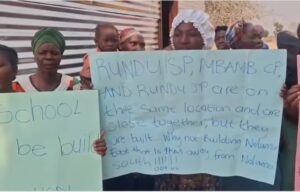 School
be buil
RUNDU SP, MBAMB CP,
AND RUNDU JP are on
the same location and are
close together, but they
are built. Why not Building Ndama
away from Ndama
south !!!!!